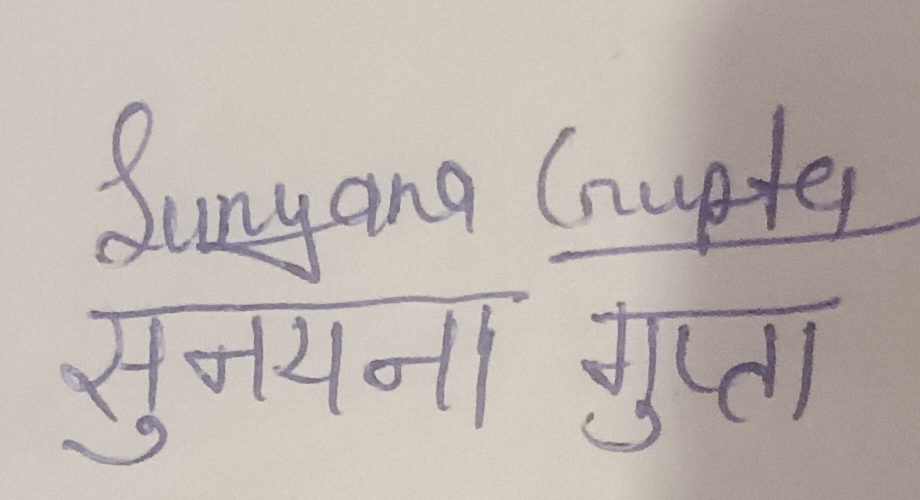 Sunyana Gupta
सुनयना गुप्ता